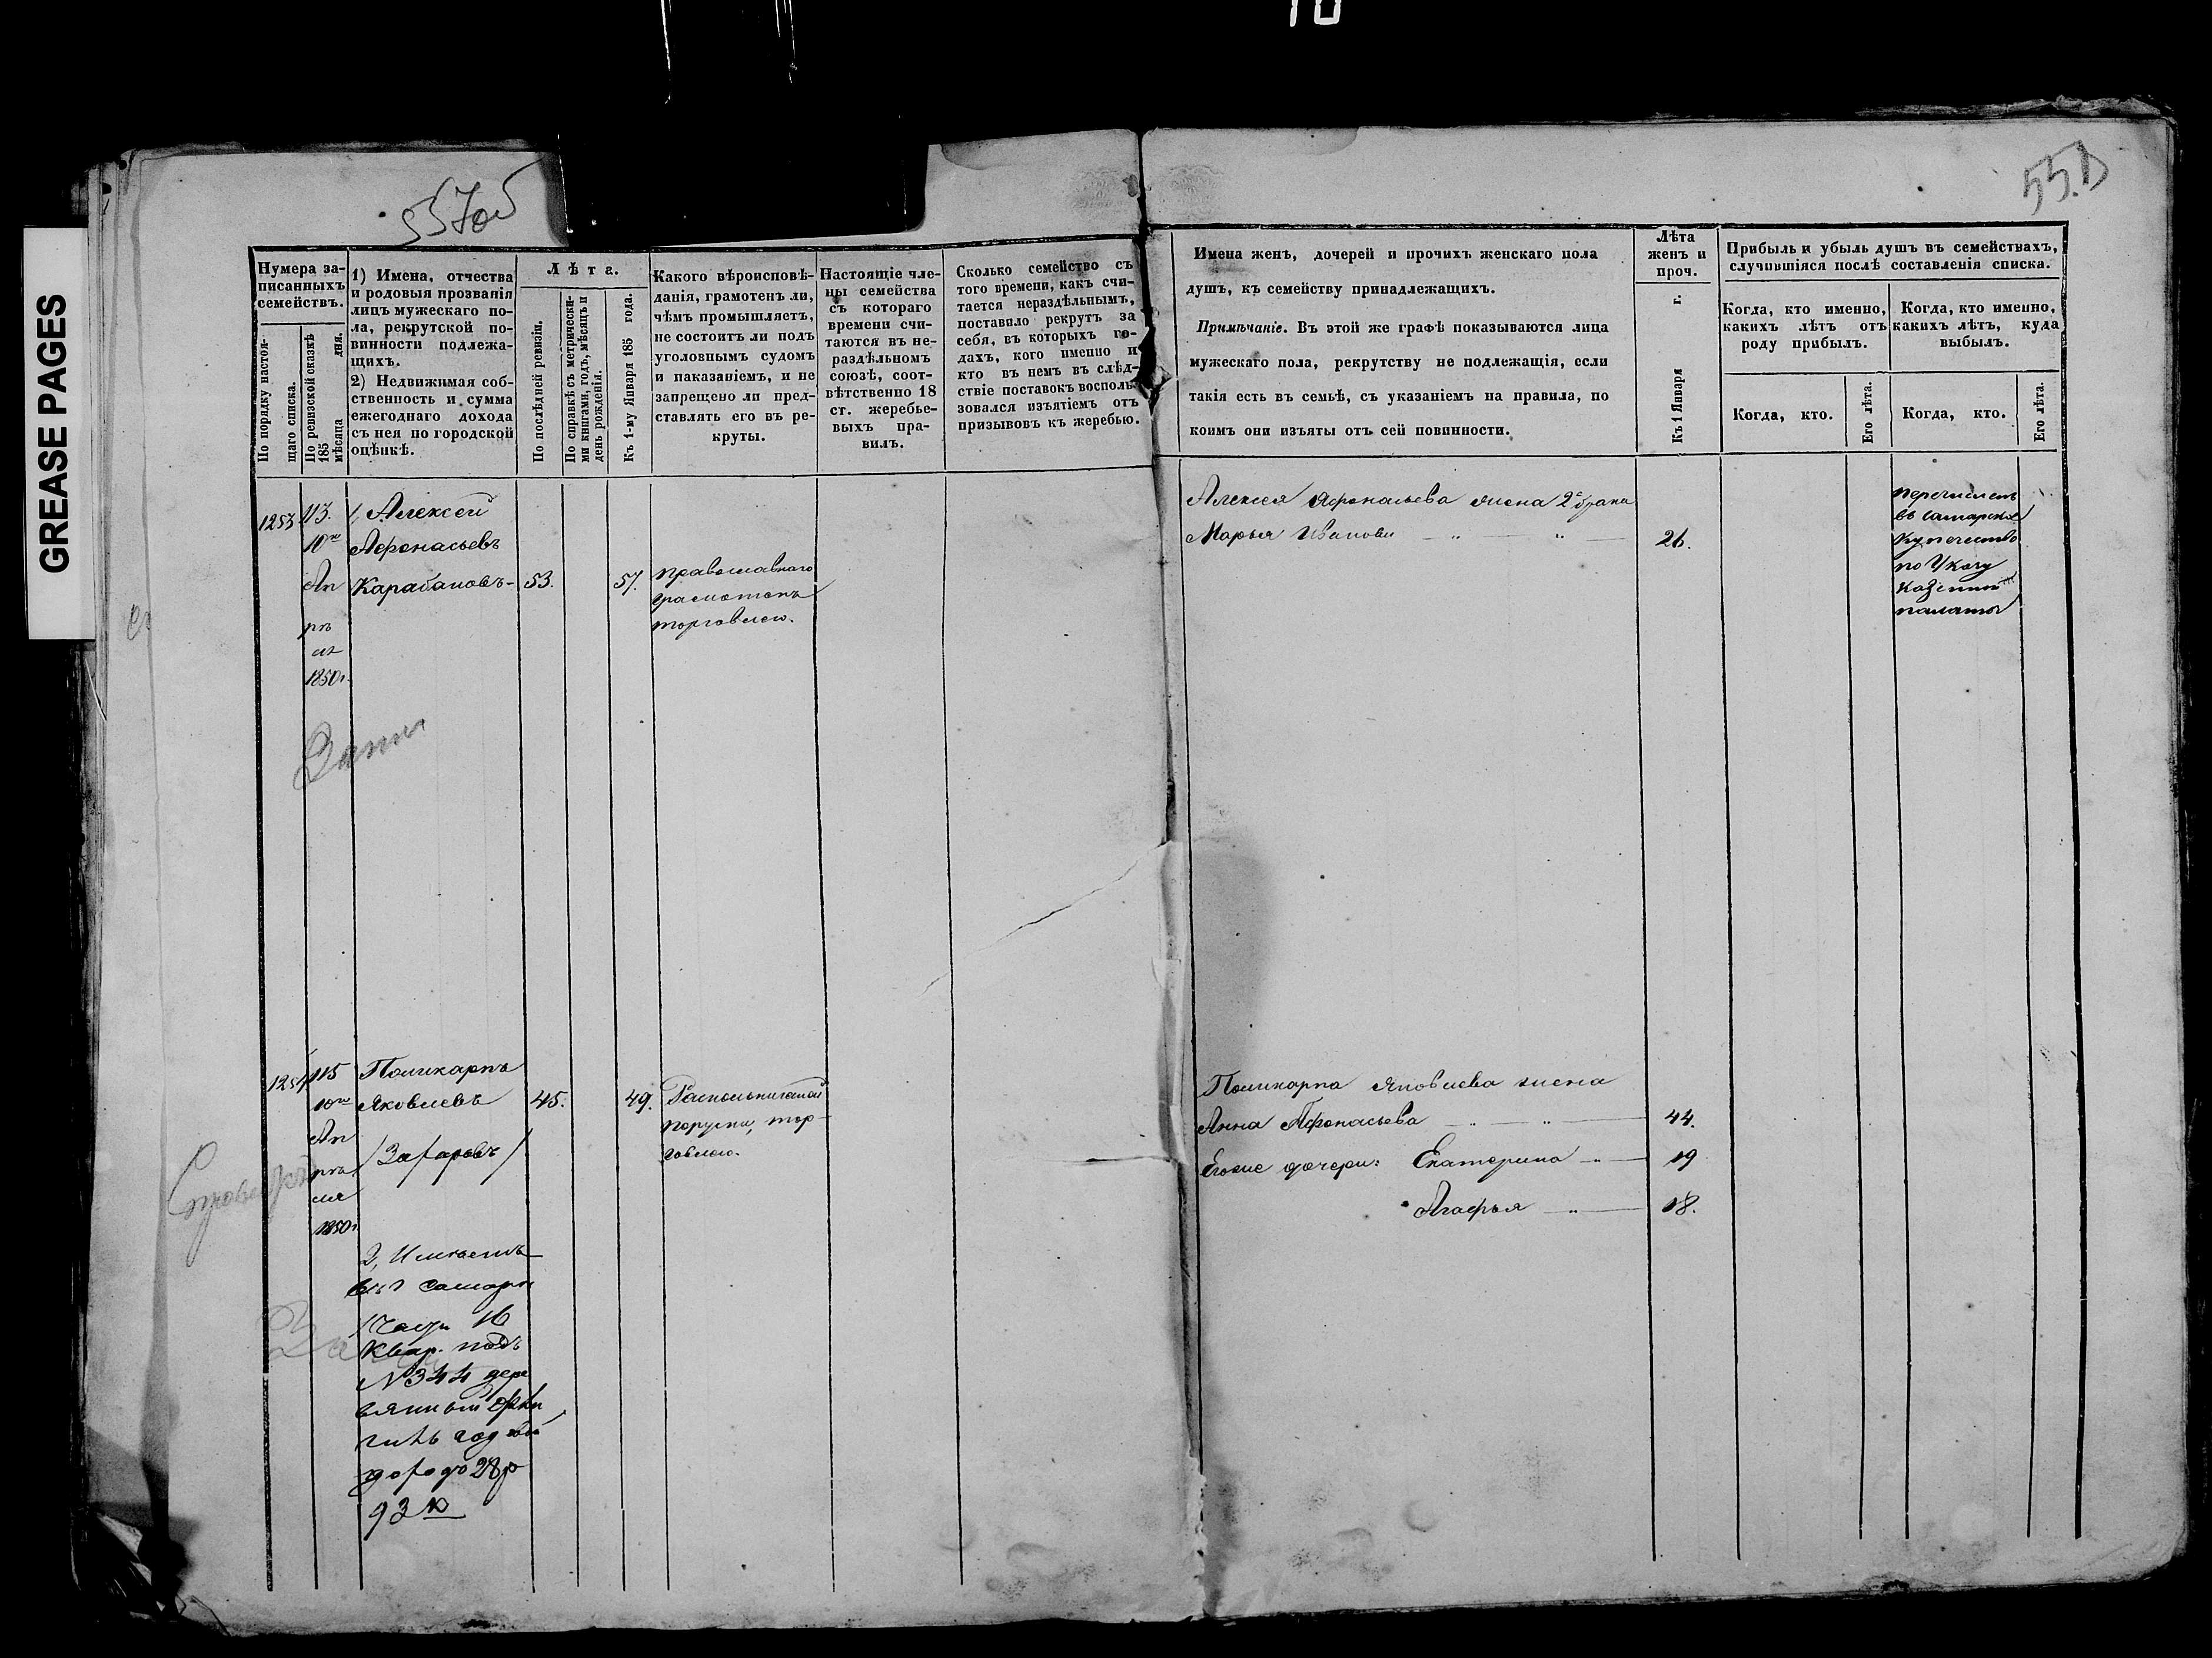 10
GREASE PAGES
557об
Нумера за-
писанныхъ
семействъ.
По порядку настоя-
щаго списка.
По ревизской сказкѣ
185 дня.
мѣсяца
1) Имена, отчества
и родовыя прозванія
лицъ мужескаго по-
ла, рекрутской по-
винности подлежа-
щихъ.
2) Недвижимая соб-
ственность и сумма
ежегоднаго дохода
съ нея по городской
оцѣнкѣ.
Лѣта.
По послѣдней ревизіи.
По справкѣ съ метрически-
ми книгами, годъ, мѣсяцъ и
день рожденія.
Къ 1-му Января 185 года.
Какого вѣроисповѣ-
данія, грамотенъ ли,
чѣмъ промышляетъ,
не состоитъ ли подъ
уголовнымъ судомъ
и наказаніемъ, и не
запрещено ли пред-
ставлять его въ ре-
круты.
Настоящіе чле-
ны семейства
съ котораго
времени счи-
таются въ не-
раздѣльномъ
союзѣ, соот-
вѣтственно 18
ст. жеребье-
выхъ пра-
вилъ.
Сколько семейство съ
того времени, какъ счи-
тается нераздѣльнымъ,
поставило рекрутъ за
себя, въ которыхъ го-
дахъ, кого именно и
кто въ немъ въ слѣд-
ствіе поставокъ восполь-
зовался изъятіемъ отъ
призывовъ къ жеребью.
1253
113.
10го
Ап
рѣ
ля
1850г.
1, Алексей
Афонасьевъ
Карабановъ-
53.
57.
православнаго
грамотенъ
торговлею.
1254
115
10го
Ап
рѣ
ля
1850г
Поликарпъ
Яковлевъ
/Захаровъ/
45.
49.
поруски, тор-
говлею.
2, Имѣетъ
въ г Самаре
1 части 16
квар. подъ
№344 дере
вянный
годовой
доходо 28р
93к
Имена женъ, дочерей и прочихъ женскаго пола
душъ, къ семейству принадлежащихъ.
Примѣчаніе. Въ этой же графѣ показываются лица
мужескаго пола, рекрутству не подлежащія, если
такія есть въ семьѣ, съ указаніемъ на правила, по
коимъ они изъяты отъ сей повинности.
Лѣта
женъ и
проч.
Къ 1 Января г.
Прибыль и убыль душъ въ семействахъ,
случившіяся послѣ составленія списка.
Когда, кто именно,
какихъ лѣтъ отъ
роду прибылъ.
Когда, кто именно,
какихъ лѣтъ, куда
выбылъ.
Когда, кто.
Его лѣта.
Когда, кто.
Его лѣта.
Алексея Афонасьева жена 2го брака
Марья Иванови
26.
перечисленъ
въ самарское
купечество
по Указу
казенной
палаты
Поликарпа Яковлева жена
Анна Афонасьева
44.
дочери: Екатерина
19
Агафья
18.